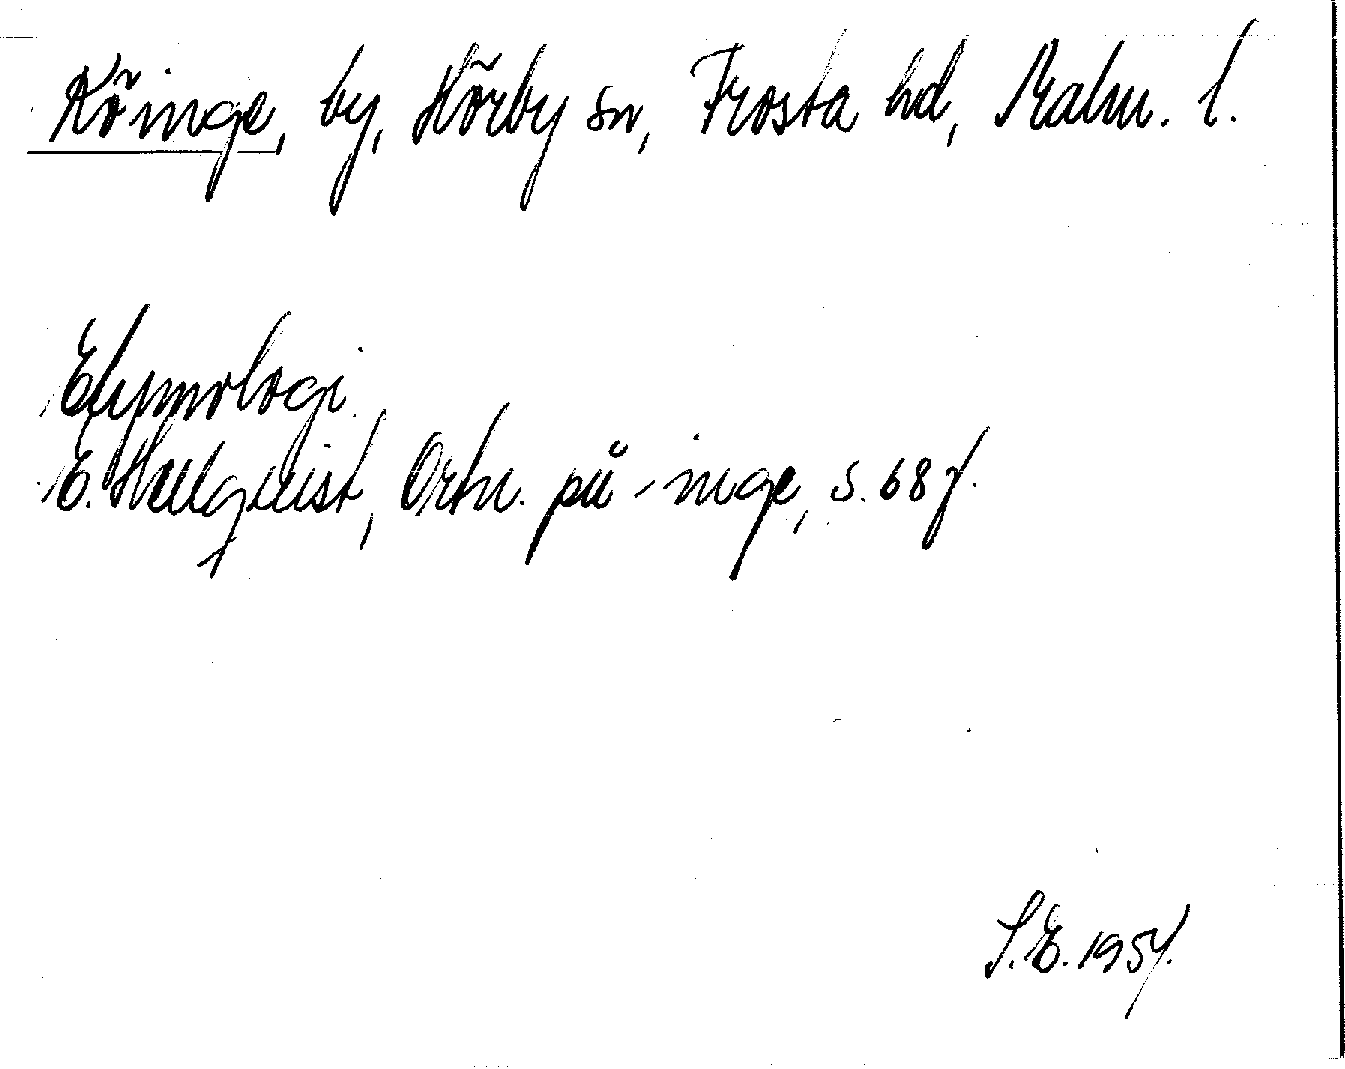 Köinge, by, Hörby sn, Frosta hd, Malm. l.
Etymologi.
E. Hellquist, Ortn. på -inge, s. 68 f.
S.E. 1954.